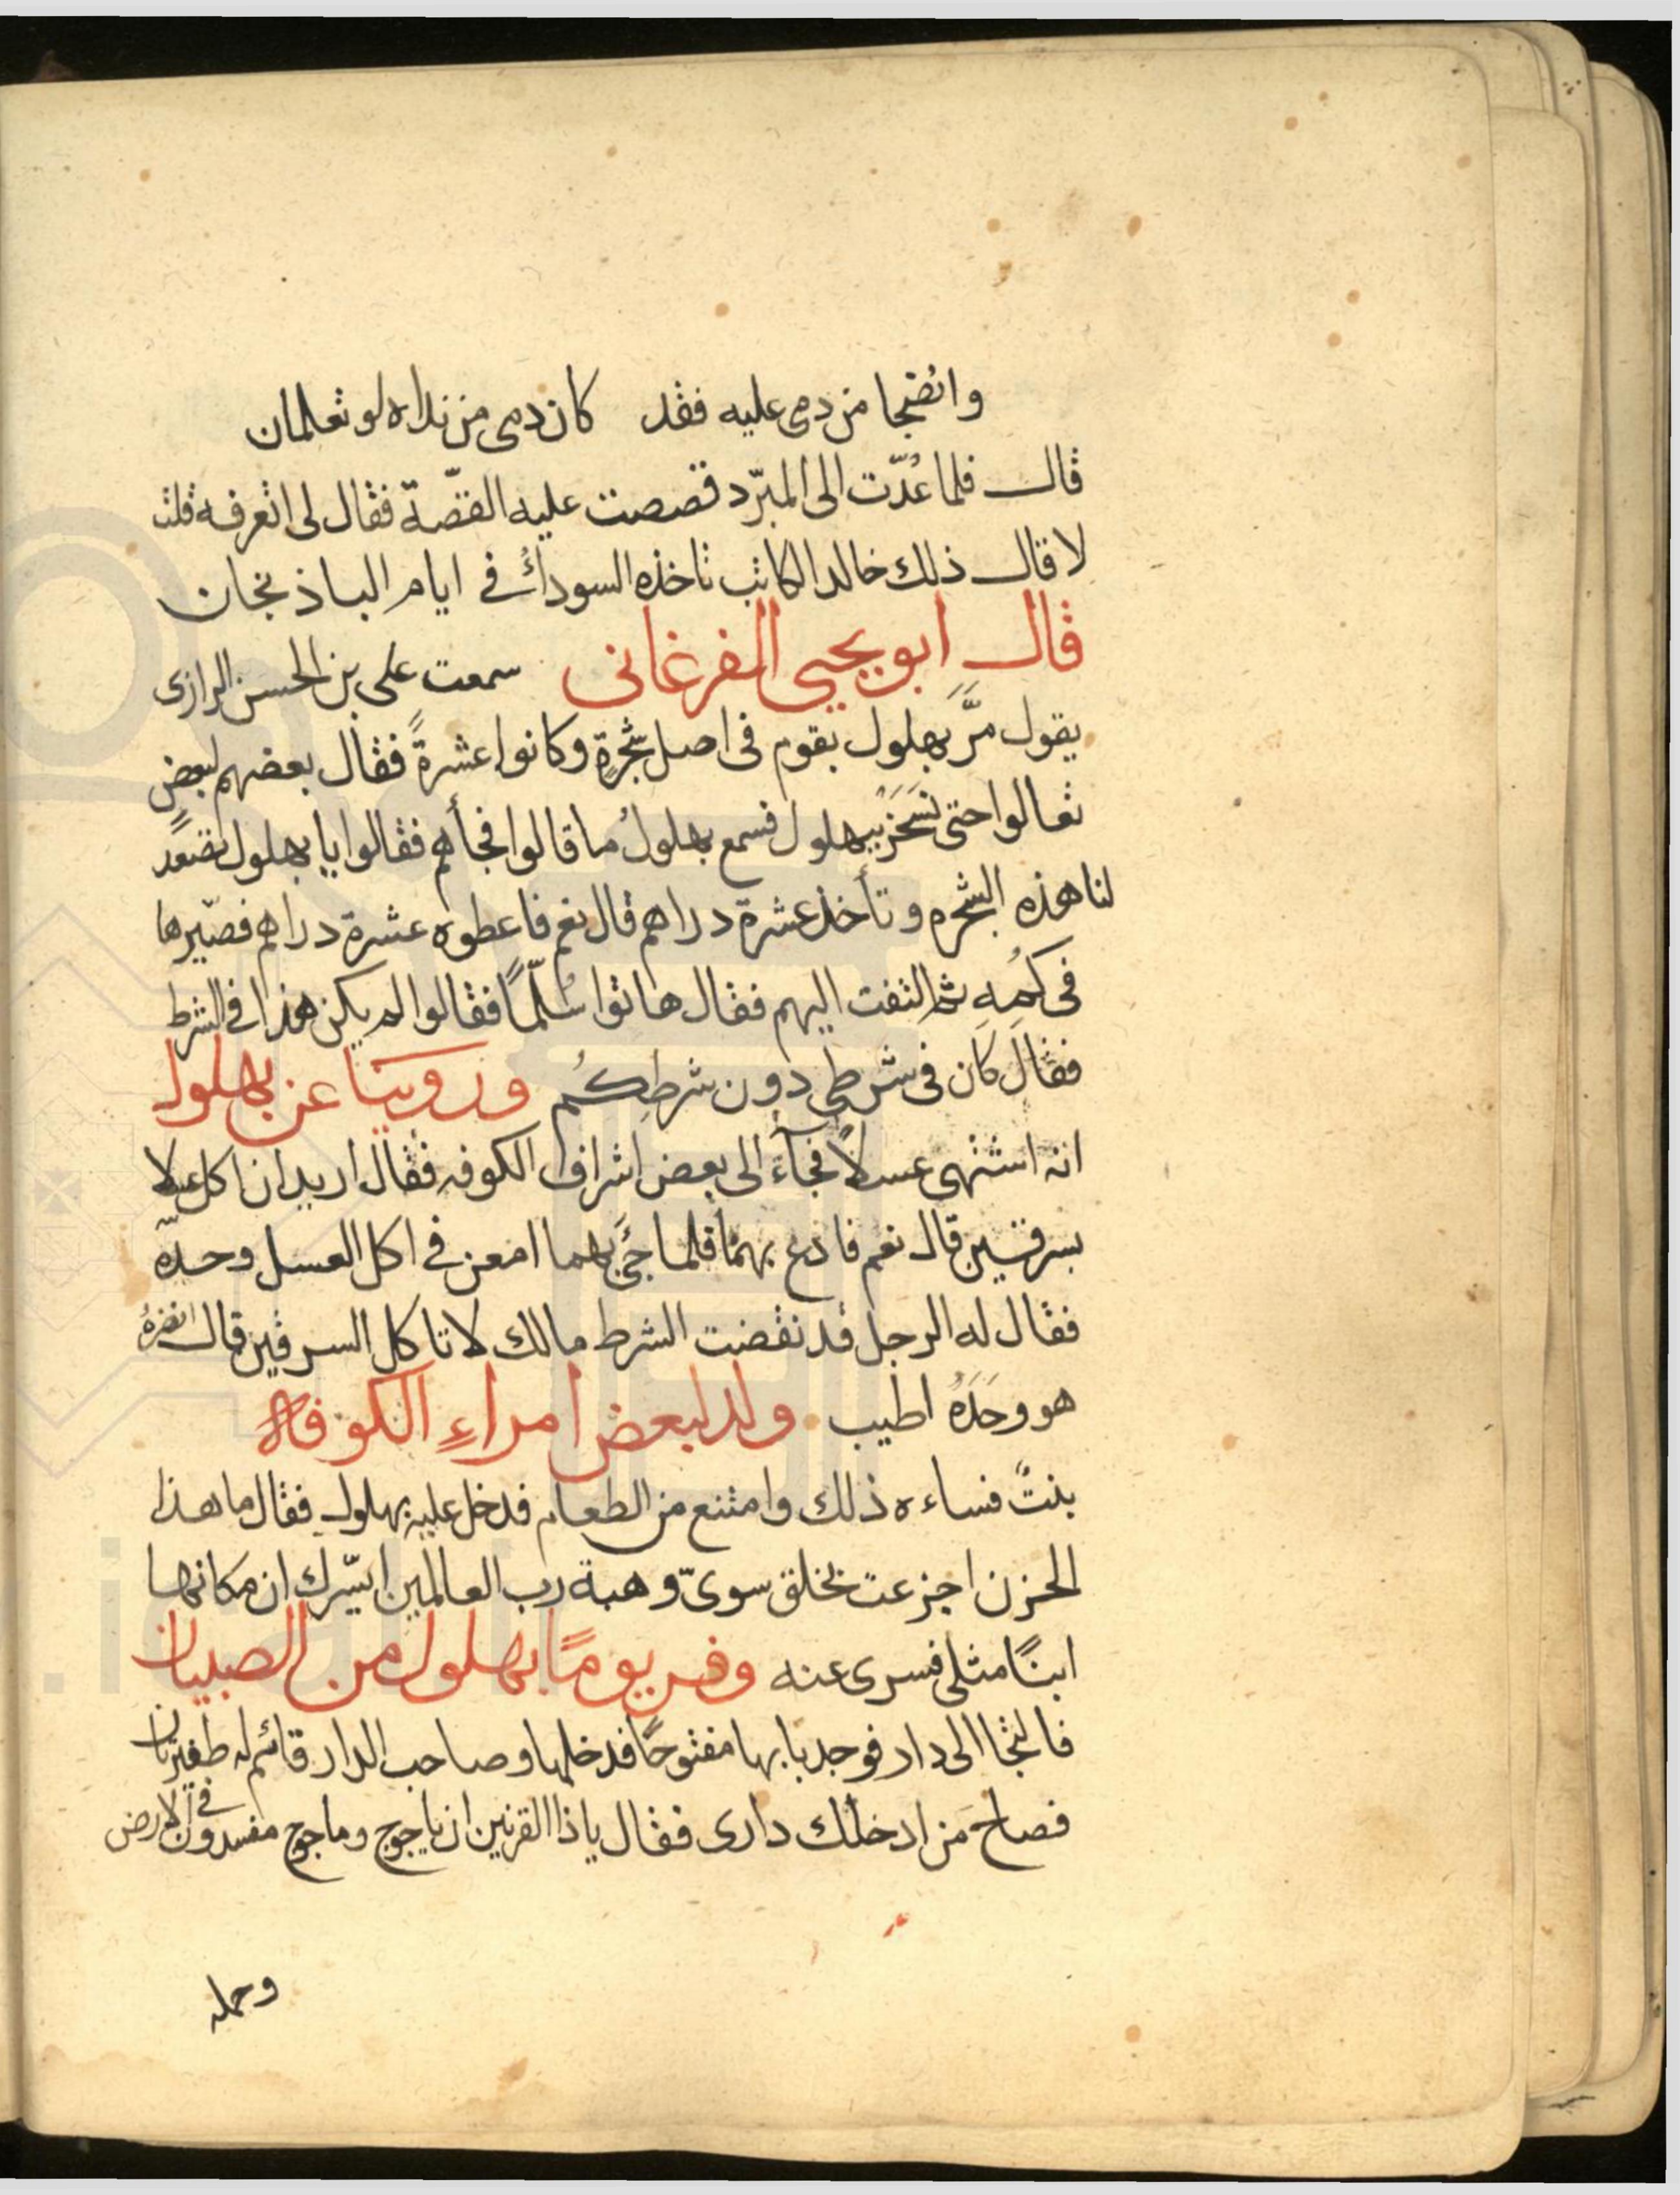 وانضجا من دمي عليه فقد كان دمى من نداه لو تعلمان
قال فلما عُدّت الى المبرّد قصصت عليه القصّة فقال لى اتعرفه قلت
لا قال ذلك خالد الكاتب تاخذه السودآءُ في ايام الباذنجان
قال ابو يحيى الفرغانى سمعت على بن الحسن الرازى
يقول مرَّ بهلول بقوم فى اصل شجرةٍ وكانوا عشرةً فقال بعضهم لبعض
تعالوا حتى نَسَخَر ببهلول فسمع بهلولُ ما قالوا فجأهم فقالوا يا بهلول تصَعَد
لنا هذه الشجره وتأخذ عشرة دراهم قال نعم فاعطوه عشرة دراهم فصيّرها
فى كُمِهِ ثم التفت اليهم فقال هاتوا سُلّمًا فقالوا لم يكن هذا في الشرط
فقال كان فى شرطى دون شرطكُم وروينا عن بهلول
انه اشتهى عسلاً فجآءَ الى بعض اشراف الكوفه فقال اريد ان اكل عسلا
بسرقين قال نعم فادع بهمَا فلما جئَ بهما امعن في اكل العسل وحدهّ
فقال له الرجل قد نقضت الشرط مالك لا تاكل السرقين قال
هو وحَدَهُ اطيب ولد لبعض امراءِ الكوفة
بنتٌ فساءه ذلك وامتنع من الطعام فدخل عليه بهلول فقال ما هذا
الحزن اجزعت بخلق سوىّ وهبة رب العالمين ايسّرك ان مكانها
ابنًا مثلى فسرى عنه وفر يومًا بهلول من الصبيان
فالتجا الى دار فوجد بابها مفتوحًا فدخلها وصاحب الدار قائم له ظفيرتان
فصاح مَن ادخلك دارى فقال ياذا القرنين ان ياجوج وماجوج مفسدون في الارض
وحمله